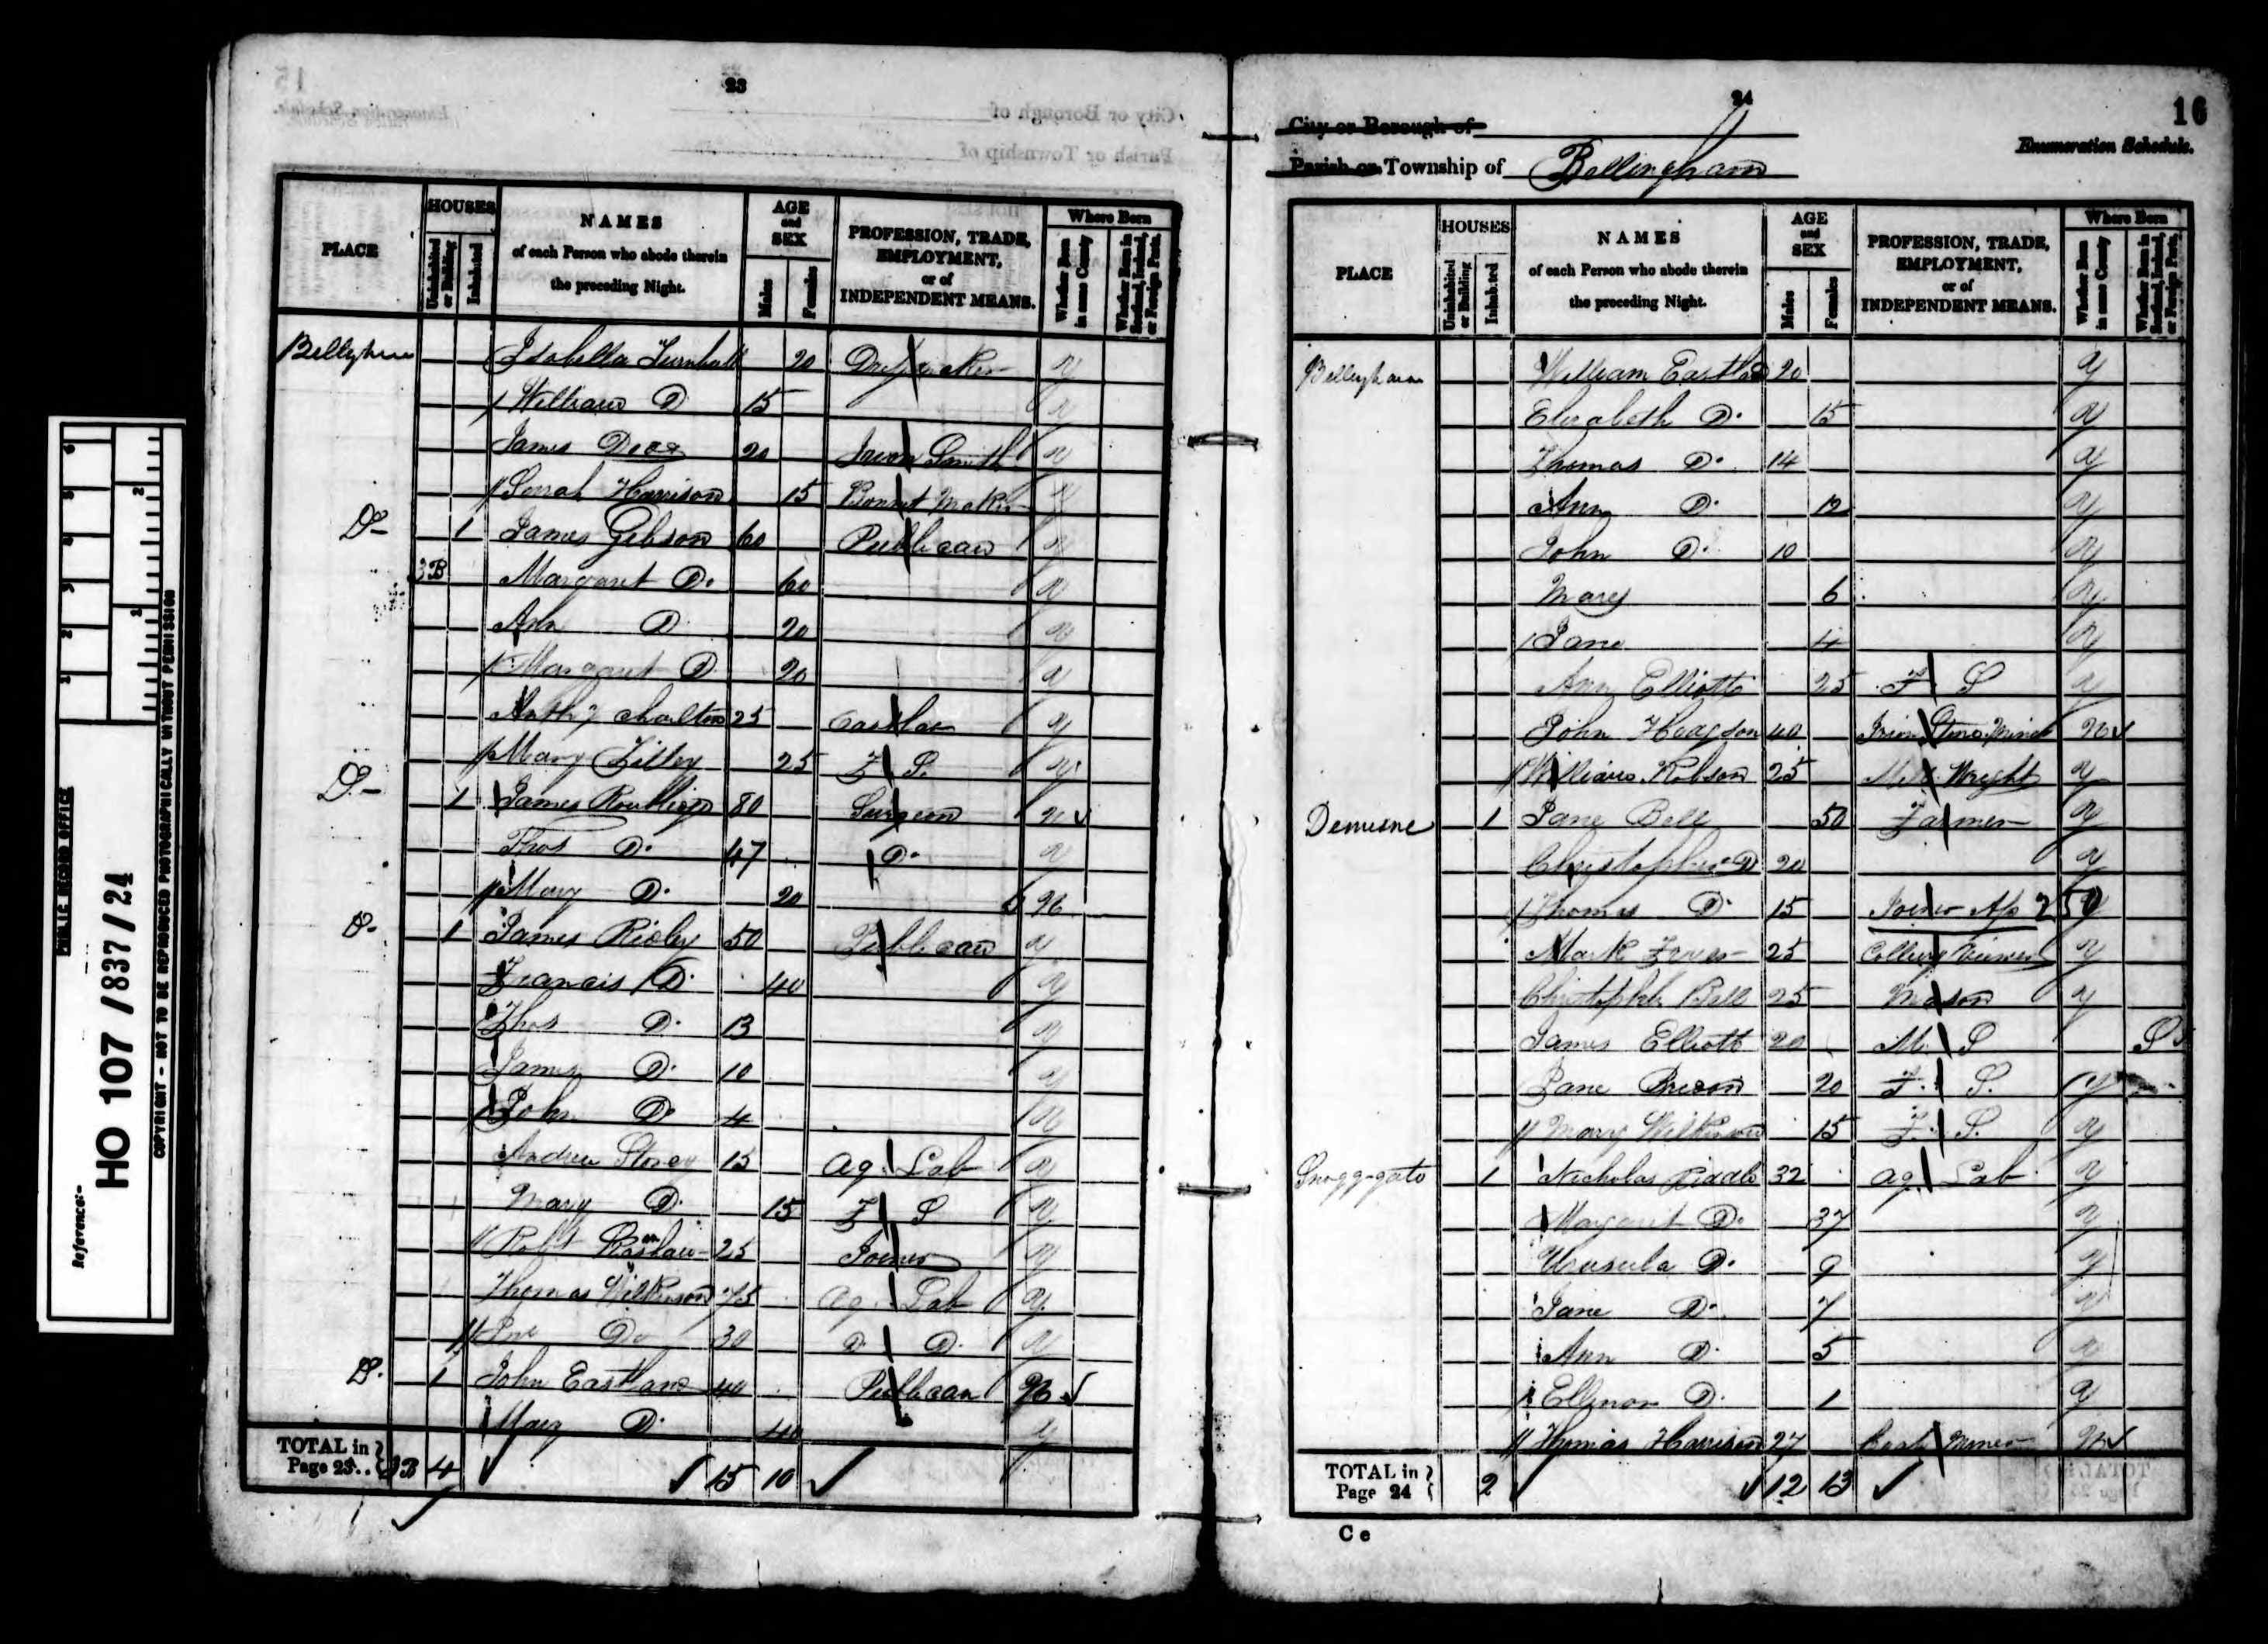 PUBLIC RECORD OFFICE
Reference:-
HO 107 /837/24
COPYRIGHT - NOT TO BE REPRODUCED PHOTOGRAPHICALLY WITHOUT PERMISSION
23
PLACE
HOUSES
Uninhabited or Building
Inhabited
NAMES
of each Person who abode therein
the preceding Night.
AGE
and
SEX
Males
Females
PROFESSION, TRADE,
EMPLOYMENT,
or of
INDEPENDENT MEANS.
Where Born
Whether Born in same County
Whether Born in Scotland, Ireland, or Foreign Parts.
Isabella Turnbull 20 y
William D 15 y
James 20 Iron Smith y
Sarah Harrison 15 Bonnet Maker y
Do 1 James Gibson 60 Publican y
3B Margaret Do. 60 y
Ann D 20 y
Margaret D 20 y
Charlton 25 y
Mary 25 F S. y
Do 1 James 80 Surgeon n
Thos Do. 47 Do. y
Mary Do. 20 n
Do. 1 James Ridley 50 Publican y
Francis D. 40 y
Thos D. 13 y
James D. 10 y
John Do 4 y
Andrew Storey 15 Ag. Lab y
Mary D. 15 F S y
Robt 25 Joiner y
Thomas Wilkinson 75 Ag. Lab y
Do 30 D. D. y
Do. 1 John Eastland 40 Publican N
Mary D. 40 y
TOTAL in
Page 23.. 3B 4 15 10
24
16
City or Borough of
Enumeration Schedule.
Parish or Township of Bellingham
PLACE
HOUSES
Uninhabited or Building
Inhabited
NAMES
of each Person who abode therein
the preceding Night.
AGE
and
SEX
Males
Females
PROFESSION, TRADE,
EMPLOYMENT,
or of
INDEPENDENT MEANS.
Where Born
Whether Born in same County
Whether Born in Scotland, Ireland, or Foreign Parts.
Bellingham William 20 y
Elizabeth D. 15 y
Thomas D. 14 y
Ann D. 12 y
John D. 10 y
Mary 6 y
Jane 4 y
Ann Elliott 25 F. S y
John Hodgson 40 N
William Robson 25 Mill Wright y
Demesne 1 Jane Bell 50 Farmer y
Christopher D 20 y
Thomas D. 15 Joiner Ap y
Mark 25 Colliery Viewer y
Christopher Bell 25 Mason y
James Elliott 20 M. S S
Jane 20 F. S. y
Mary Wilkinson 15 F. S. y
1 Nicholas Riddle 32 Ag. Lab y
Margaret D. 37 y
Ursula D. 9 y
Jane D. 7 y
Ann D. 5 y
Ellinor D. 1 y
Thomas Harrison 27 N
TOTAL in
Page 24 2 12 13
C c